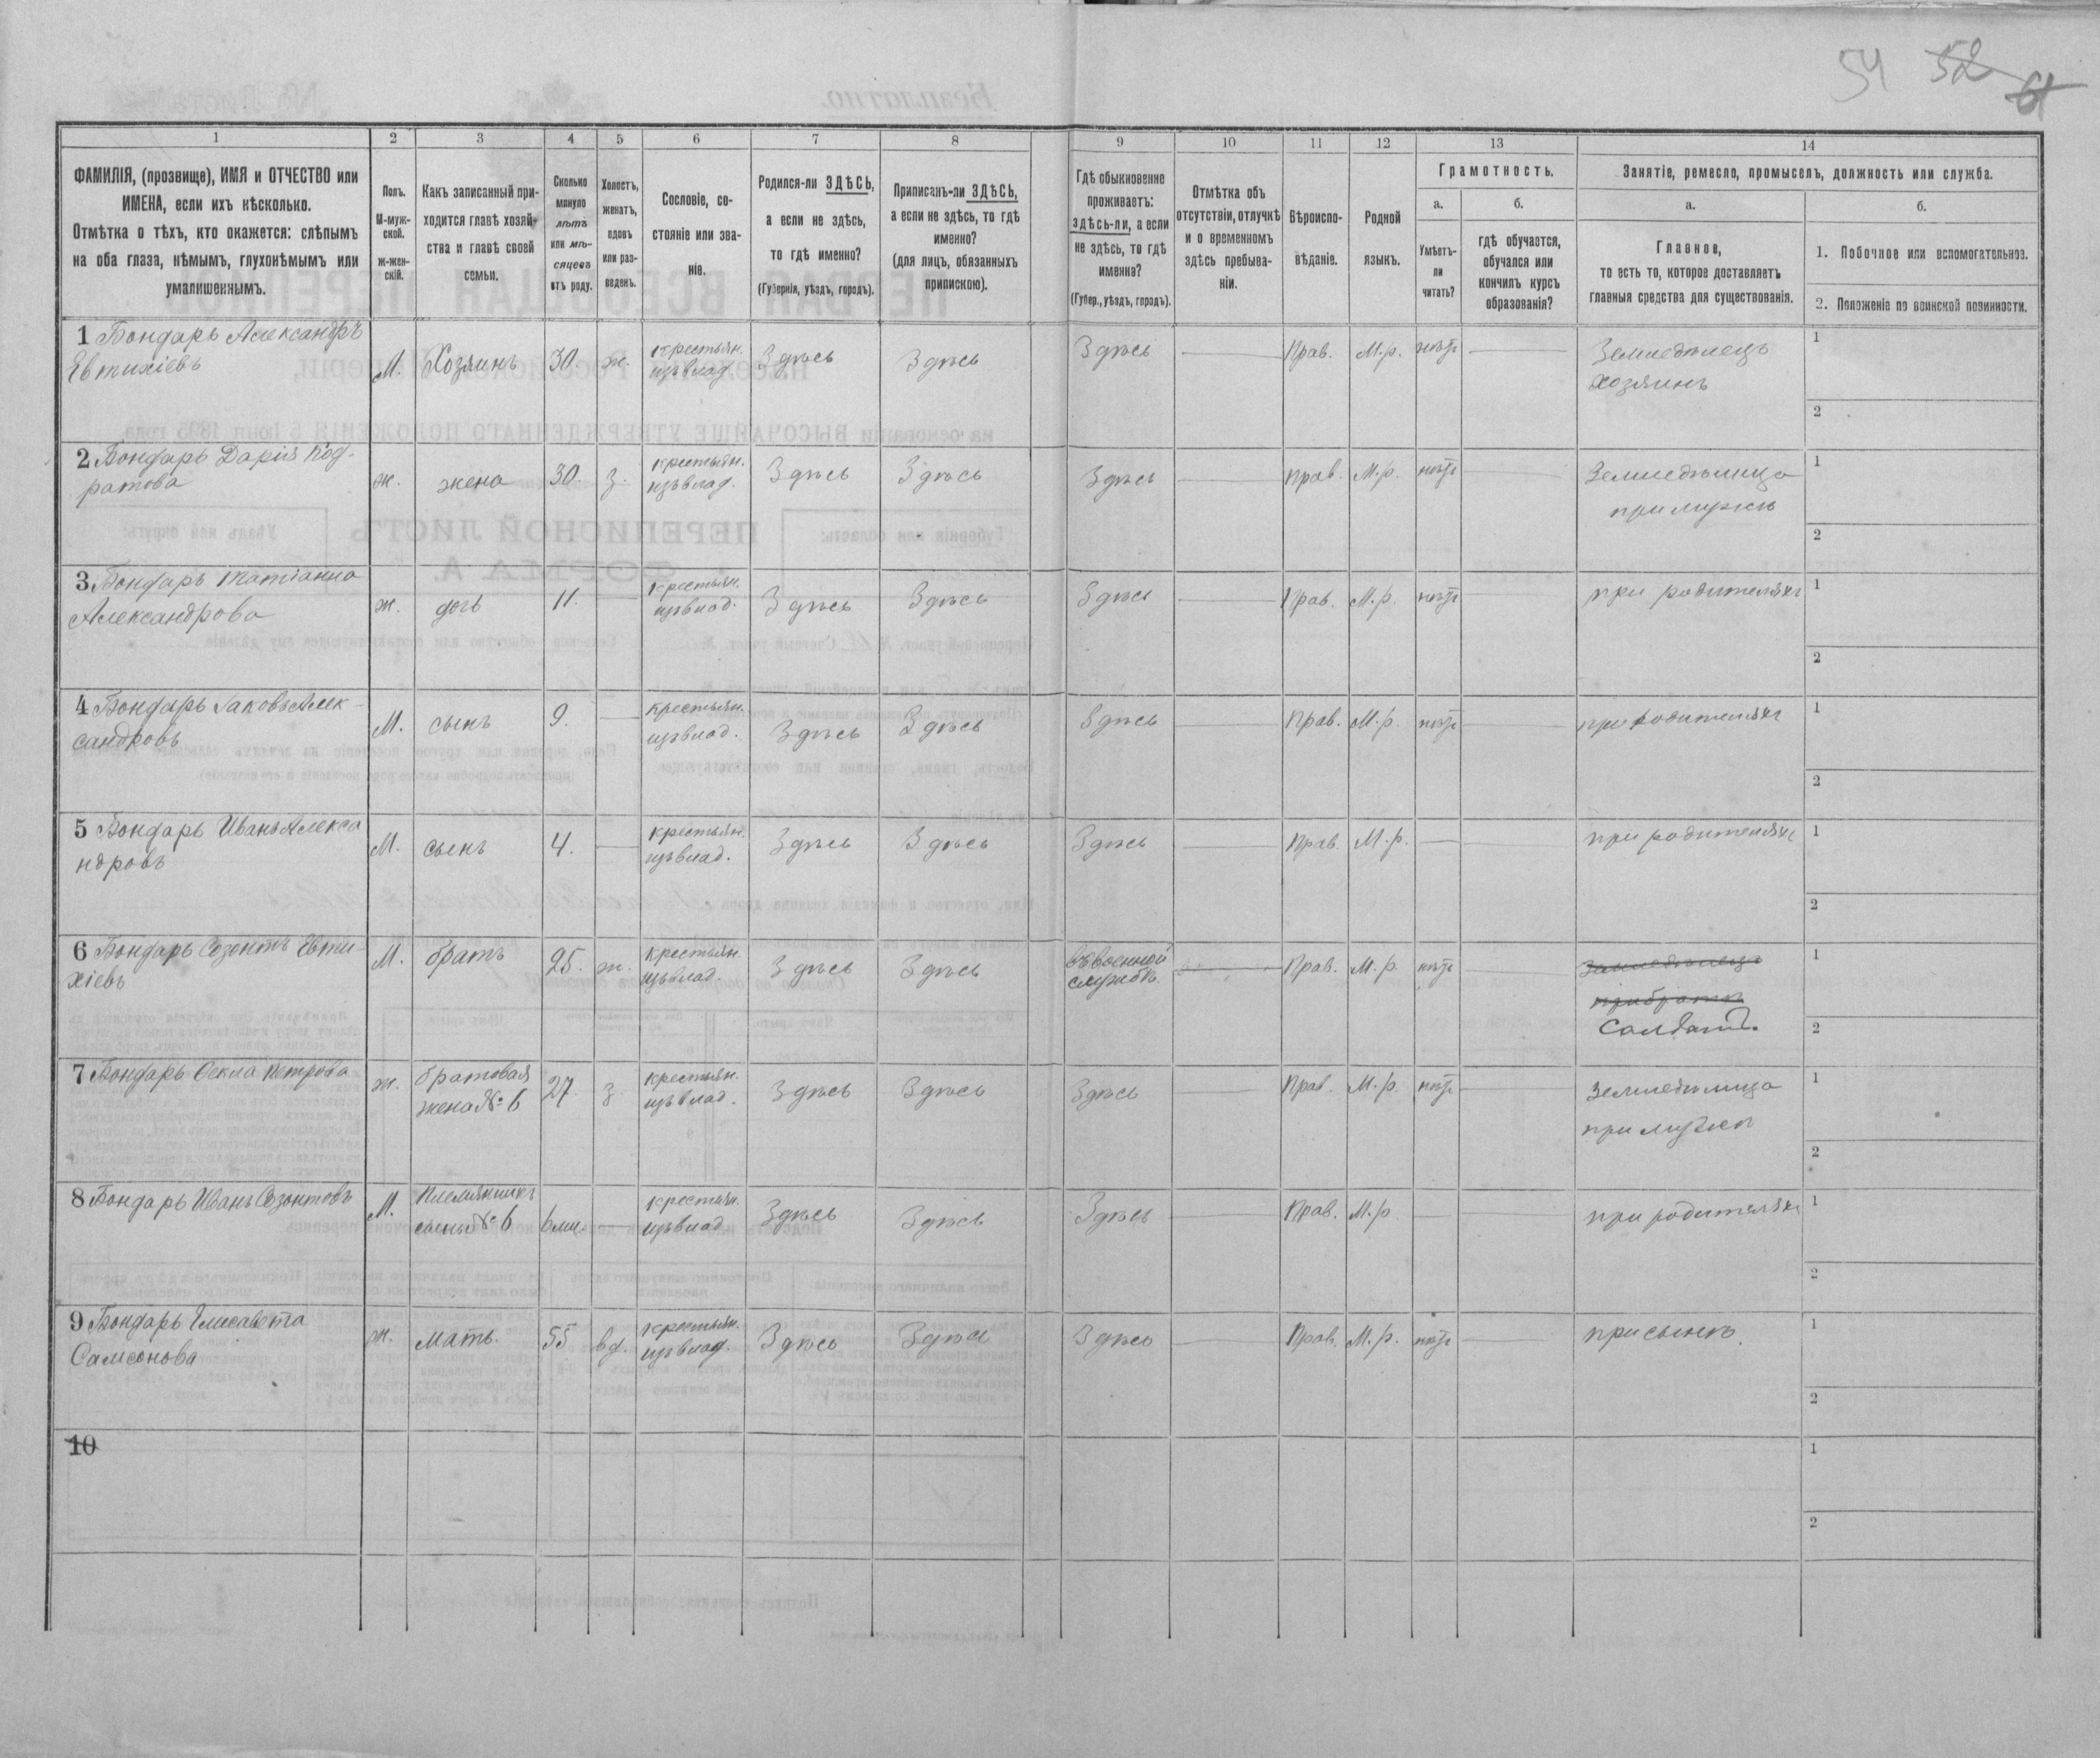 54 52 61
1 2 3 4 5 6 7 8 9 10 11 12 13 14
ФАМИЛІЯ, (прозвище), ИМЯ и ОТЧЕСТВО или
ИМЕНА, если ихъ нѣсколько.
Отмѣтка о тѣхъ, кто окажется: слѣпымъ
на оба глаза, нѣмымъ, глухонѣмымъ или
умалишеннымъ.
Полъ.
М-муж-
ской.
ж-жен-
скій.
Какъ записанный при-
ходится главѣ хозяй-
ства и главѣ своей
семьи.
Сколько
минуло
лѣтъ
или мѣ-
сяцевъ
отъ роду.
Холостъ,
женатъ,
вдовъ
или раз-
веденъ.
Сословіе, со-
стояніе или зва-
ніе.
Родился-ли ЗДѢСЬ,
а если не здѣсь,
то гдѣ именно?
(Губернія, уѣздъ, городъ).
Приписанъ-ли ЗДѢСЬ,
а если не здѣсь, то гдѣ
именно?
(для лицъ, обязанныхъ
припискою).
Гдѣ обыкновенно
проживаетъ:
здѣсь-ли, а если
не здѣсь, то гдѣ
именно?
(Губер., уѣздъ, городъ).
Отмѣтка объ
отсутствіи, отлучкѣ
и о временномъ
здѣсь пребыва-
ніи.
Вѣроиспо-
вѣданіе.
Родной
языкъ.
Грамотность.
а.
Умѣетъ-
ли
читать?
б.
гдѣ обучается,
обучался или
кончилъ курсъ
образованія?
Занятіе, ремесло, промыселъ, должность или служба.
а.
Главное,
то есть то, которое доставляетъ
главныя средства для существованія.
б.
1. Побочное или вспомогательное.
2. Положеніе по воинской повинности.
1 Бондарь Александръ
Евтихіевъ
М. Хозяинъ 30. ж. крестьян. изъ влад. Здѣсь Здѣсь Здѣсь — Прав. М.р. нѣтъ —
Земледѣлецъ
хозяинъ
1
2
2 Бондарь Дарія Код-
ратова
ж. жена 30 з. крестьян. изъ влад. Здѣсь Здѣсь Здѣсь — Прав. М.р. нѣтъ —
Земледѣлица
при мужѣ
1
2
3 Бондарь Татіанна
Александрова
ж. дочь 11. — крестьян. изъ влад. Здѣсь Здѣсь Здѣсь — Прав. М.р. нѣтъ —
при родителяхъ
1
2
4 Бондарь Іаковъ Алек-
сандровъ
М. сынъ 9. — крестьян. изъ влад. Здѣсь Здѣсь Здѣсь — Прав. М.р. нѣтъ —
при родителяхъ
1
2
5 Бондарь Иванъ Алекса
ндровъ
М. сынъ 4. — крестьян. изъ влад. Здѣсь Здѣсь Здѣсь — Прав. М.р. — —
при родителяхъ
1
2
6 Бондарь Созонтъ Евти-
хіевъ
М. братъ 25. ж. крестьян. изъ влад. Здѣсь Здѣсь въ военной службѣ — Прав. М.р. нѣтъ —
Земледѣлецъ
при братѣ
Солдатъ.
1
2
7 Бондарь Фекла Петрова
ж. братовая жена № 6 27. з. крестьян. изъ влад. Здѣсь Здѣсь Здѣсь — Прав. М.р. нѣтъ —
Земледѣлица
при мужѣ
1
2
8 Бондарь Иванъ Созонтовъ
М. племянникъ сынъ № 6 6 мц. — крестьян. изъ влад. Здѣсь Здѣсь Здѣсь — Прав. М.р. — —
при родителяхъ
1
2
9 Бондарь Елисавета
Самсонова
ж. мать. 55 вд. крестьян. изъ влад. Здѣсь Здѣсь Здѣсь — Прав. М.р. нѣтъ —
при сынѣ.
1
2
10
1
2